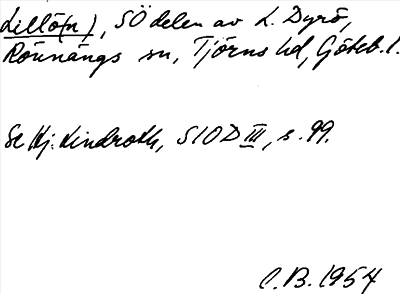 Lillö(n), SÖ delen av L. Dyrö,
Rönnängs sn, Tjörns hd, Göteb. l.
Se Hj. Lindroth, SIOD III, s. 99.
C.B. 1954